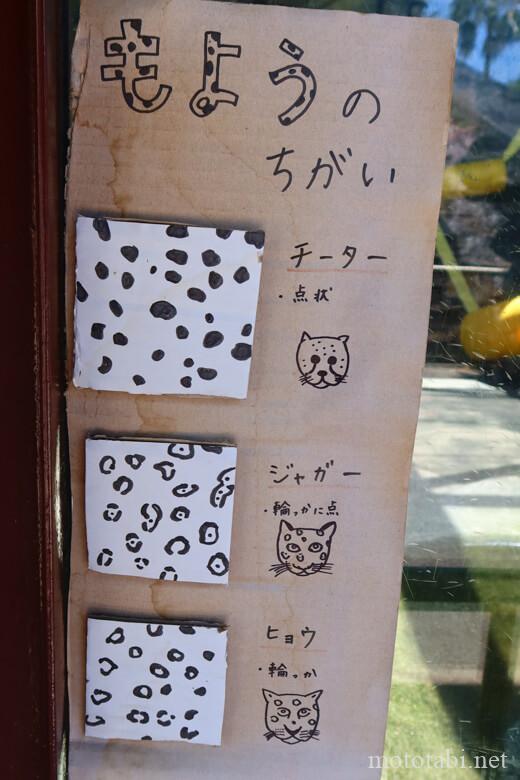 もようの
ちがい
チーター
・点状
ジャガー
・輪っかに点
ヒョウ
・輪っか
mototabi.net